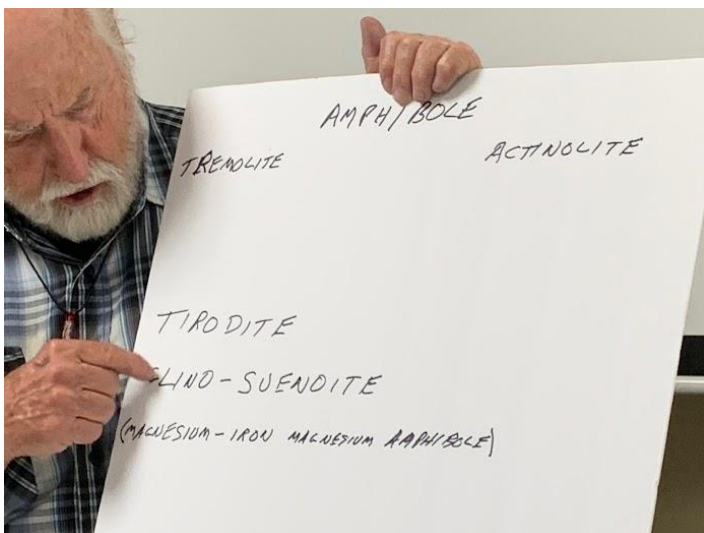 AMPHIBOLE
TREMOLITE ACTINOLITE
TIRODITE
CLINO-SUENOITE
(MAGNESIUM-IRON MAGNESIUM AMPHIBOLE)